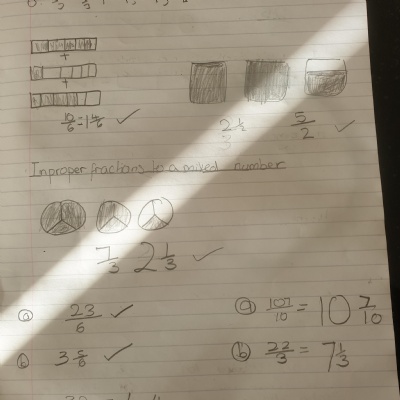 +
+
10/6 = 1 4/6 ✓
2 1/2 5/2 ✓
Inproper fractions to a mixed number
7/3 2 1/3 ✓
a 23/6 ✓
b 3 5/6 ✓
a 107/10 = 10 7/10
b 22/3 = 7 1/3